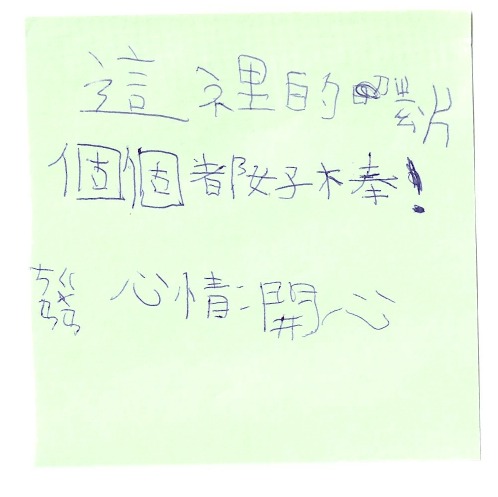 這裡的
個個都好棒!
心情:開心